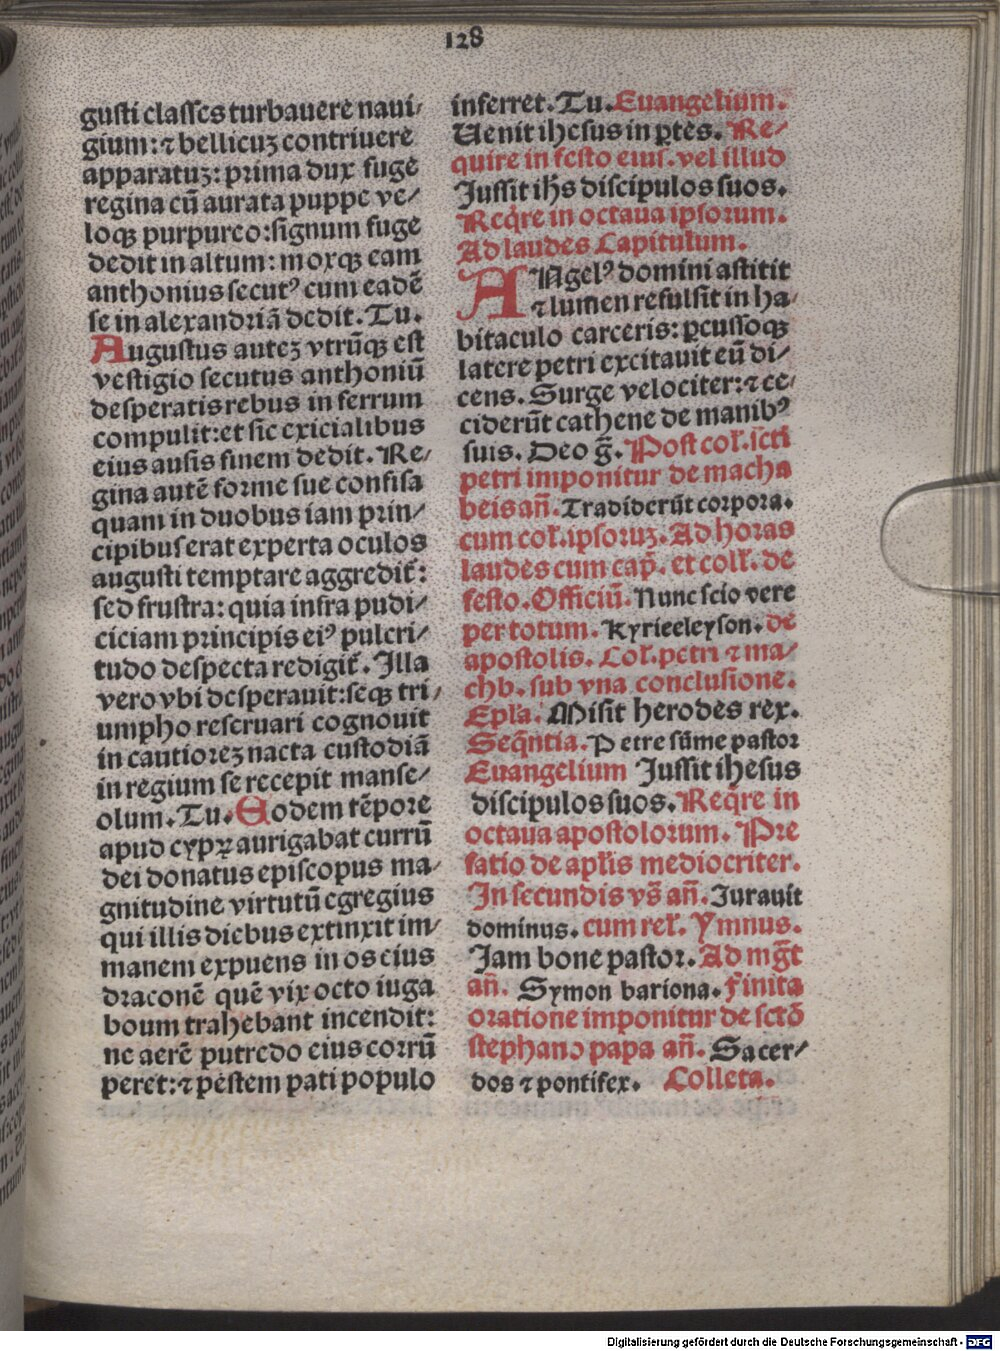 128
gusti classes turbauere naui/
gium: ⁊ bellicuꝫ contriuere
apparatuꝫ: prima dux fuge
regina cū aurata puppe ve/
loqꝫ purpureo: signum fuge
dedit in altum: moxqꝫ eam
anthonius secutꝰ cum eadē
se in alexandriā dedit. Tu.
Augustus auteꝫ vtrūqꝫ est
vestigio secutus anthoniū
desperatis rebus in ferrum
compulit: et sic exicialibus
eius ausis finem dedit. Re/
gina autē forme sue confisa
quam in duobus iam prin/
cipibus erat experta oculos
augusti temptare aggredit̃:
sed frustra: quia infra pudi/
ciciam principis eiꝰ pulcri/
tudo despecta redigit̃. Illa
vero vbi desperauit: seqꝫ tri/
umpho reseruari cognouit
in cautioreꝫ nacta custodiā
in regium se recepit manse/
olum. Tu. Eodem tēpore
apud cypꝝ aurigabat currū
dei donatus episcopus ma/
gnitudine virtutū egregius
qui illis diebus extinxit im/
manem expuens in os eius
draconē quē vix octo iuga
boum trahebant incendit:
ne aerē putredo eius corrū
peret: ⁊ pestem pati populo
inferret. Tu. Euangelium.
Uenit ihesus in ꝑtes. Re/
quire in festo eius. vel illud
Jussit ihs discipulos suos.
Reqr̃e in octaua ipsorum.
Ad laudes Capitulum.
ANgelꝰ domini astitit
⁊ lumen refulsit in ha/
bitaculo carceris: ꝑcussoqꝫ
latere petri excitauit eū di/
cens. Surge velociter: ⁊ ce/
ciderūt cathene de manibꝰ
suis. Deo g̃. Post col̃. scti
petri imponitur de macha
beis añ. Tradiderūt corpora.
cum col̃. ipsoruꝫ. Ad horas
laudes cum cap̃. et coll̃. de
festo. Officiū. Nunc scio vere
per totum. Kyrieeleyson. de
apostolis. Col̃. petri ⁊ ma/
chb. sub vna conclusione.
Epl̃a. Misit herodes rex.
Seq̃ntia. Petre sūme pastor
Euangelium Jussit ihesus
discipulos suos. Reqr̃e in
octaua apostolorum. Pre
fatio de apl̃is mediocriter.
In secundis vs̃ añ. Jurauit
dominus. cum rel̃. Ymnus.
Jam bone pastor. Ad mg̃t
añ. Symon bariona. Finita
oratione imponitur de sctō
stephano papa añ. Sacer/
dos ⁊ pontifex. Colleta.
Digitalisierung gefördert durch die Deutsche Forschungsgemeinschaft - DFG